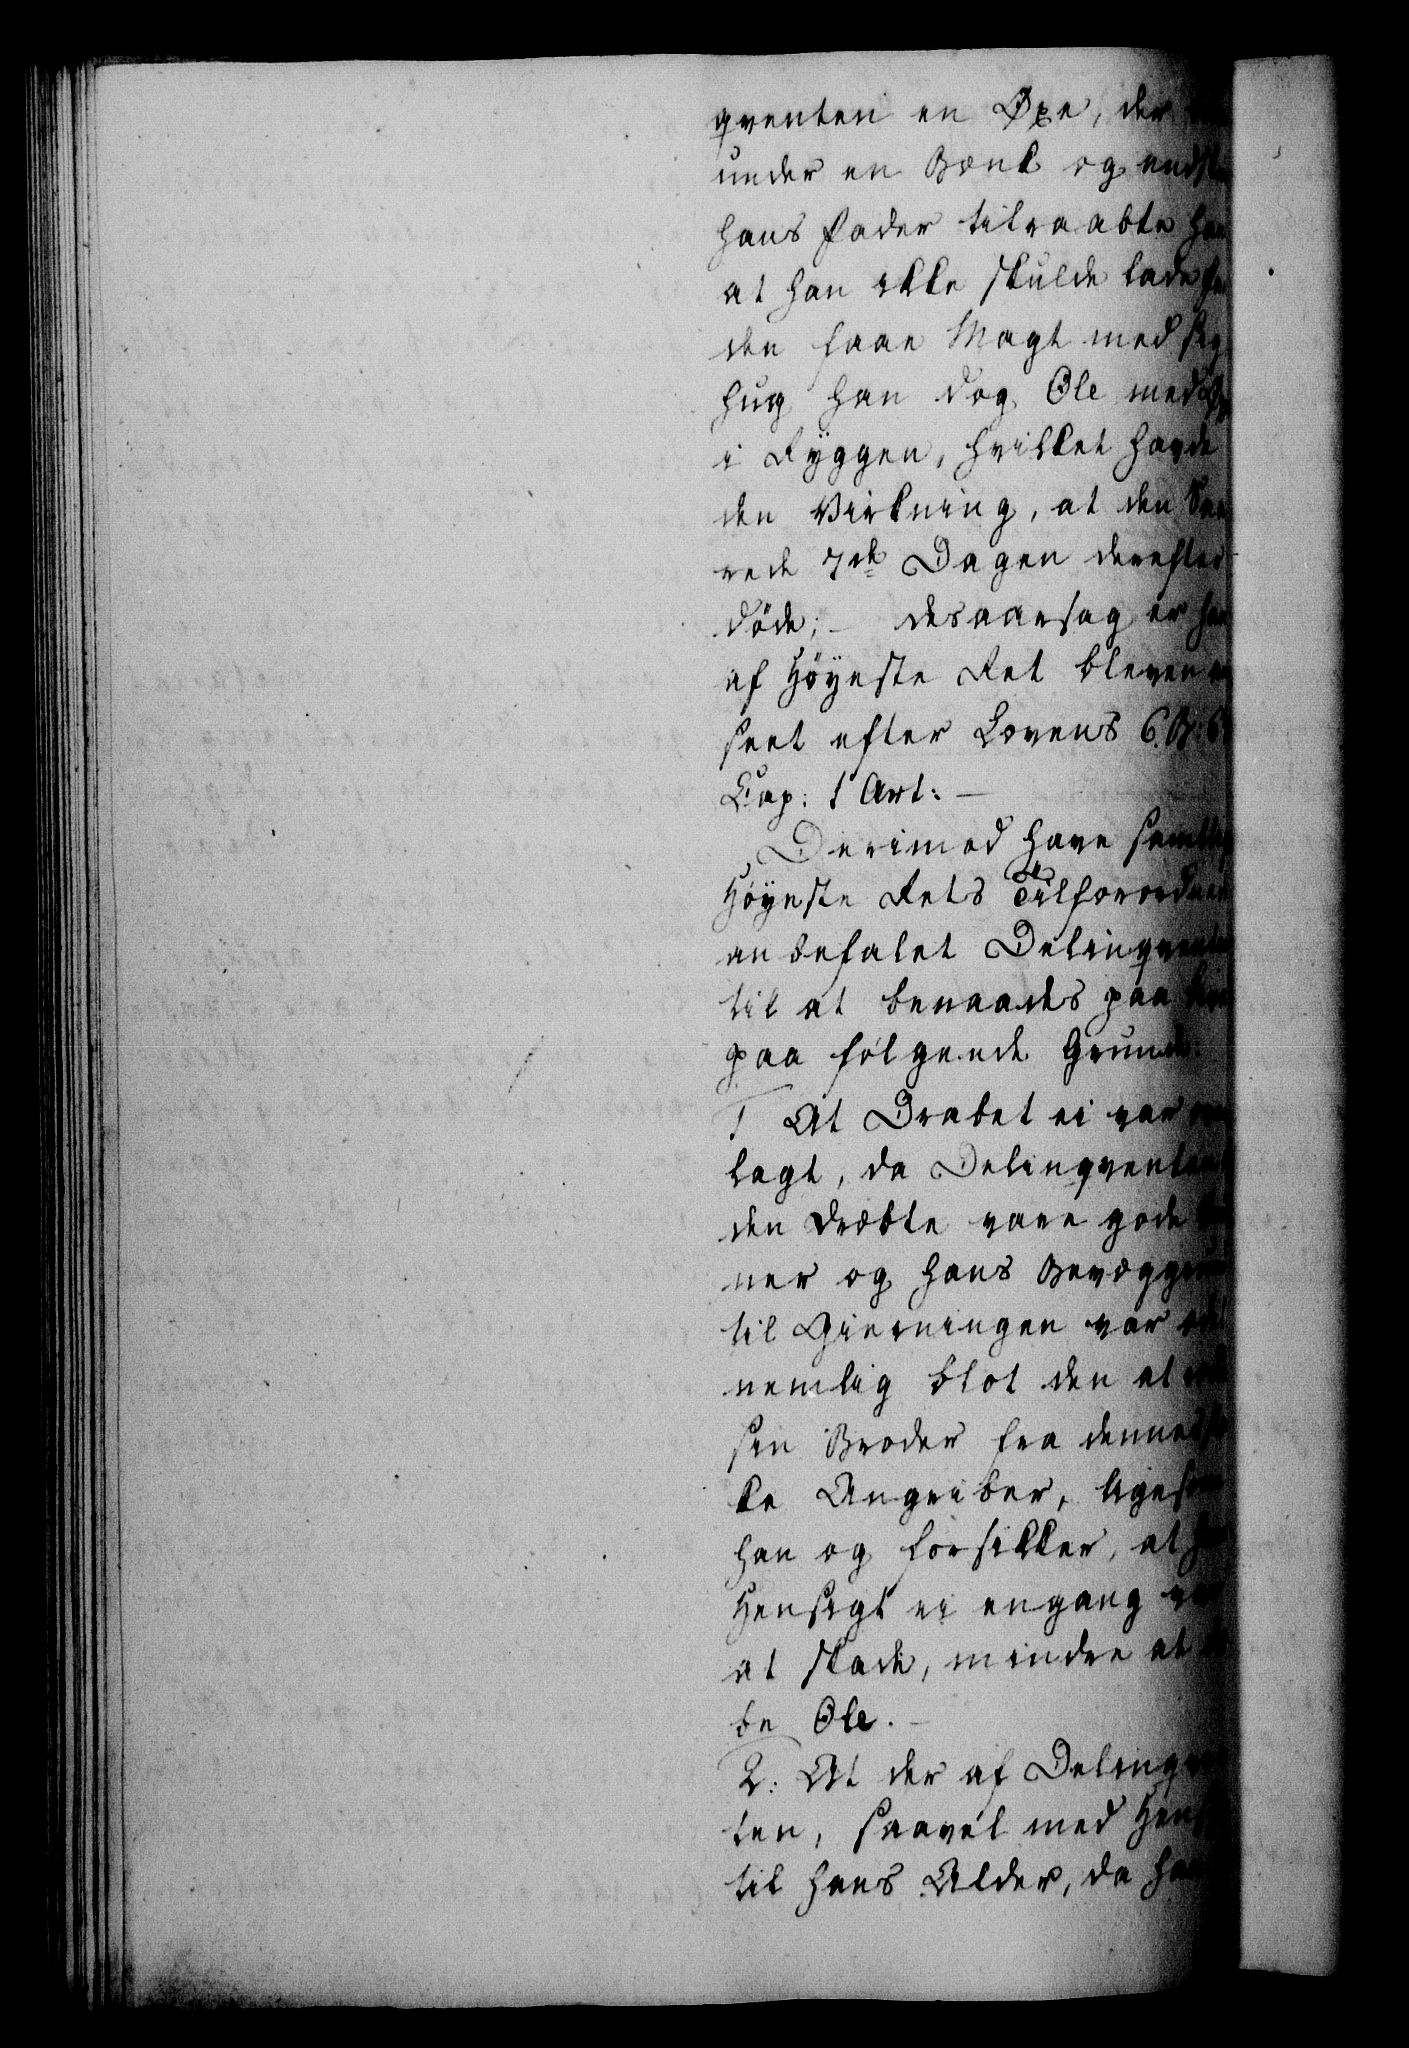 qventen en Øxe, der
under en Bænk og endsk
hans Fader tilraabte ham
at han ikke skulde lade
den faae Magt med sig
hug han dog Ole med
i Ryggen, hvilket havde
den Virkning, at den Saa
rede 7de Dagen derefter
døde; - desaarsag er han
af Høyeste Ret bleven
seet efter Lovens 6. B: 6
Cap: 1 Art: -
Derimod have samtlig
Høyeste Rets Tilforordnede
anbefalet Delinqventen
til at benaades paa
paa følgende Grunde.
1 At Drabet ei var
lagt, da Delinqventen
den Dræbte vare gode
ner og hans Bevæggrund
til Gierningen var
nemlig blot den at
sin Broder fra dennes
ke Angriber, ligesom
han og forsikker, at
Hensigt ei engang var
at skade, mindre at
be Ole. -
2: At der af Delinqven
ten, saavel med Hens
til hans Alder, da han